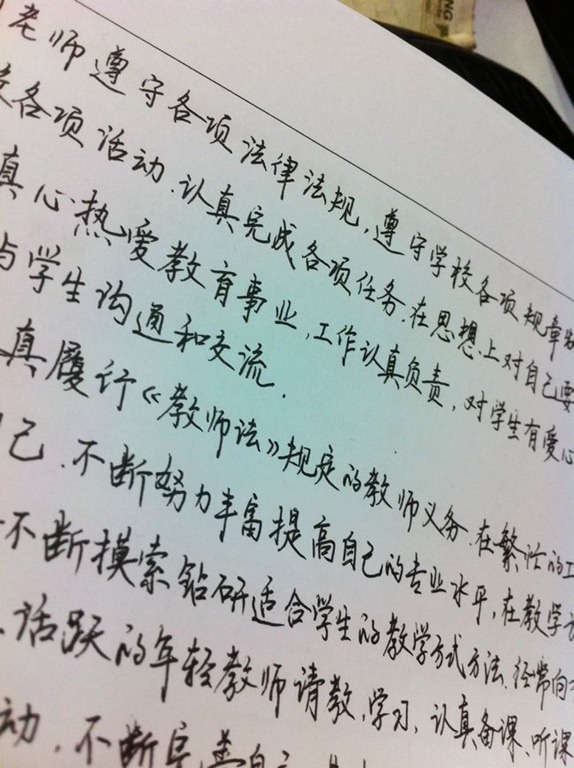 老师遵守各项法律法规,遵守学校各项规章制
校各项活动.认真完成各项任务.在思想上对自己要
真心热爱教育事业,工作认真负责,对学生有爱心
与学生沟通和交流.
真履行《教师法》规定的教师义务.在繁忙的工
己.不断努力丰富提高自己的专业水平,在教学
不断摸索钻研适合学生的教学方式方法.经常向
活跃的年轻教师请教,学习,认真备课、听课
动.不断完善自